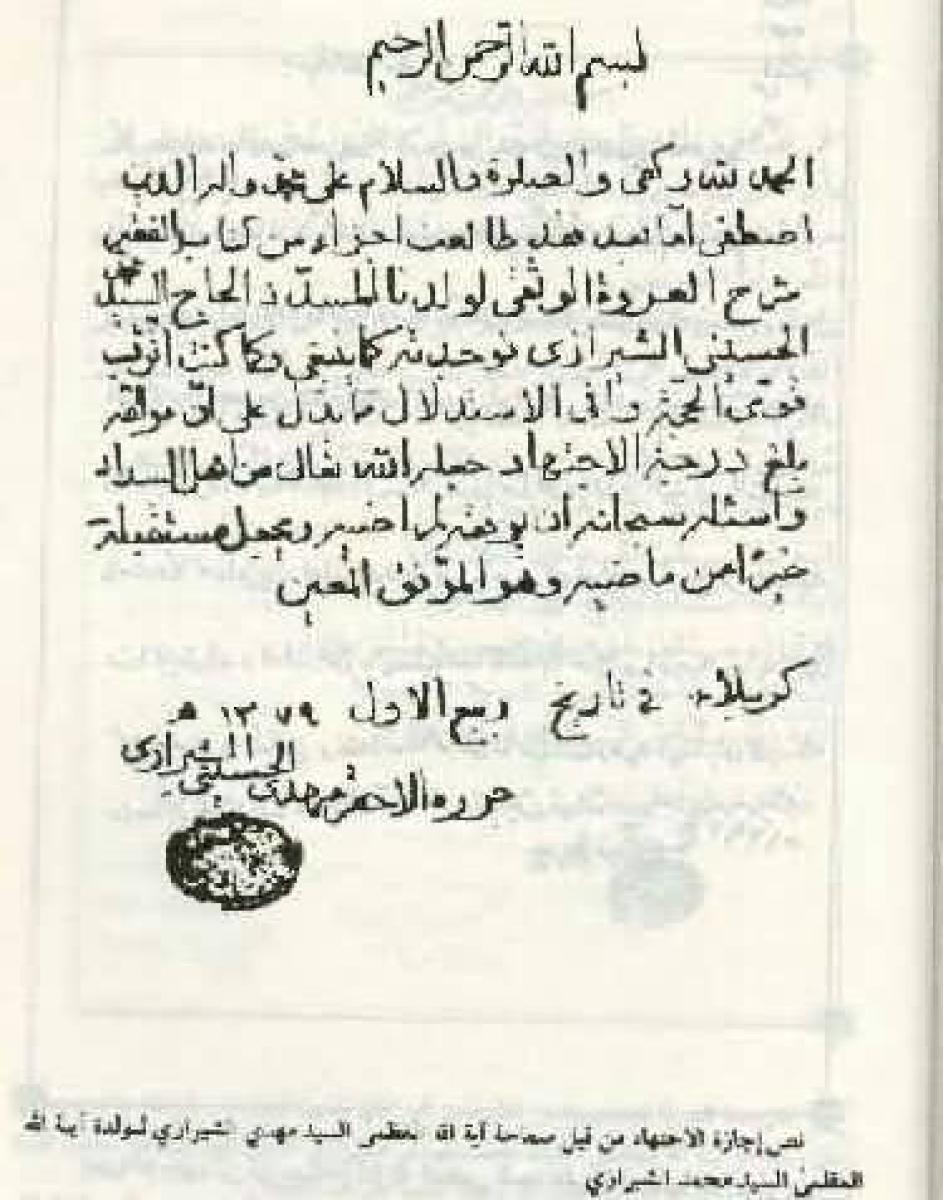 بسم الله الرحمن الرحيم
الحمد لله وكفى والصلوة والسلام على محمد واله الذين
اصطفى اما بعد فقد طالعت اجزاء من كتاب الفقه
شرح العروة الوثقى لولدنا المسدد الحاج السيد محمد
الحسيني الشيرازي فوجدته كما ينبغي وكما كنت اترقب
قوي الحجة وافي الاستدلال مما يدل على ان مولفه
بلغ درجة الاجتهاد جعله الله تعالى من اهل السداد
واسئله سبحانه ان يوفقه لمراضيه ويجعل مستقبله
خيرًا من ماضيه وهو الموفق المعين
كربلاء في تاريخ ربيع الاول ١٣٧٩ هـ
حرره الاحقر مهدي الحسيني الشيرازي
نص إجازة الاجتهاد من قبل سماحة آية الله العظمى السيد مهدي الشيرازي لولدة آية الله
العظمى السيد محمد الشيرازي